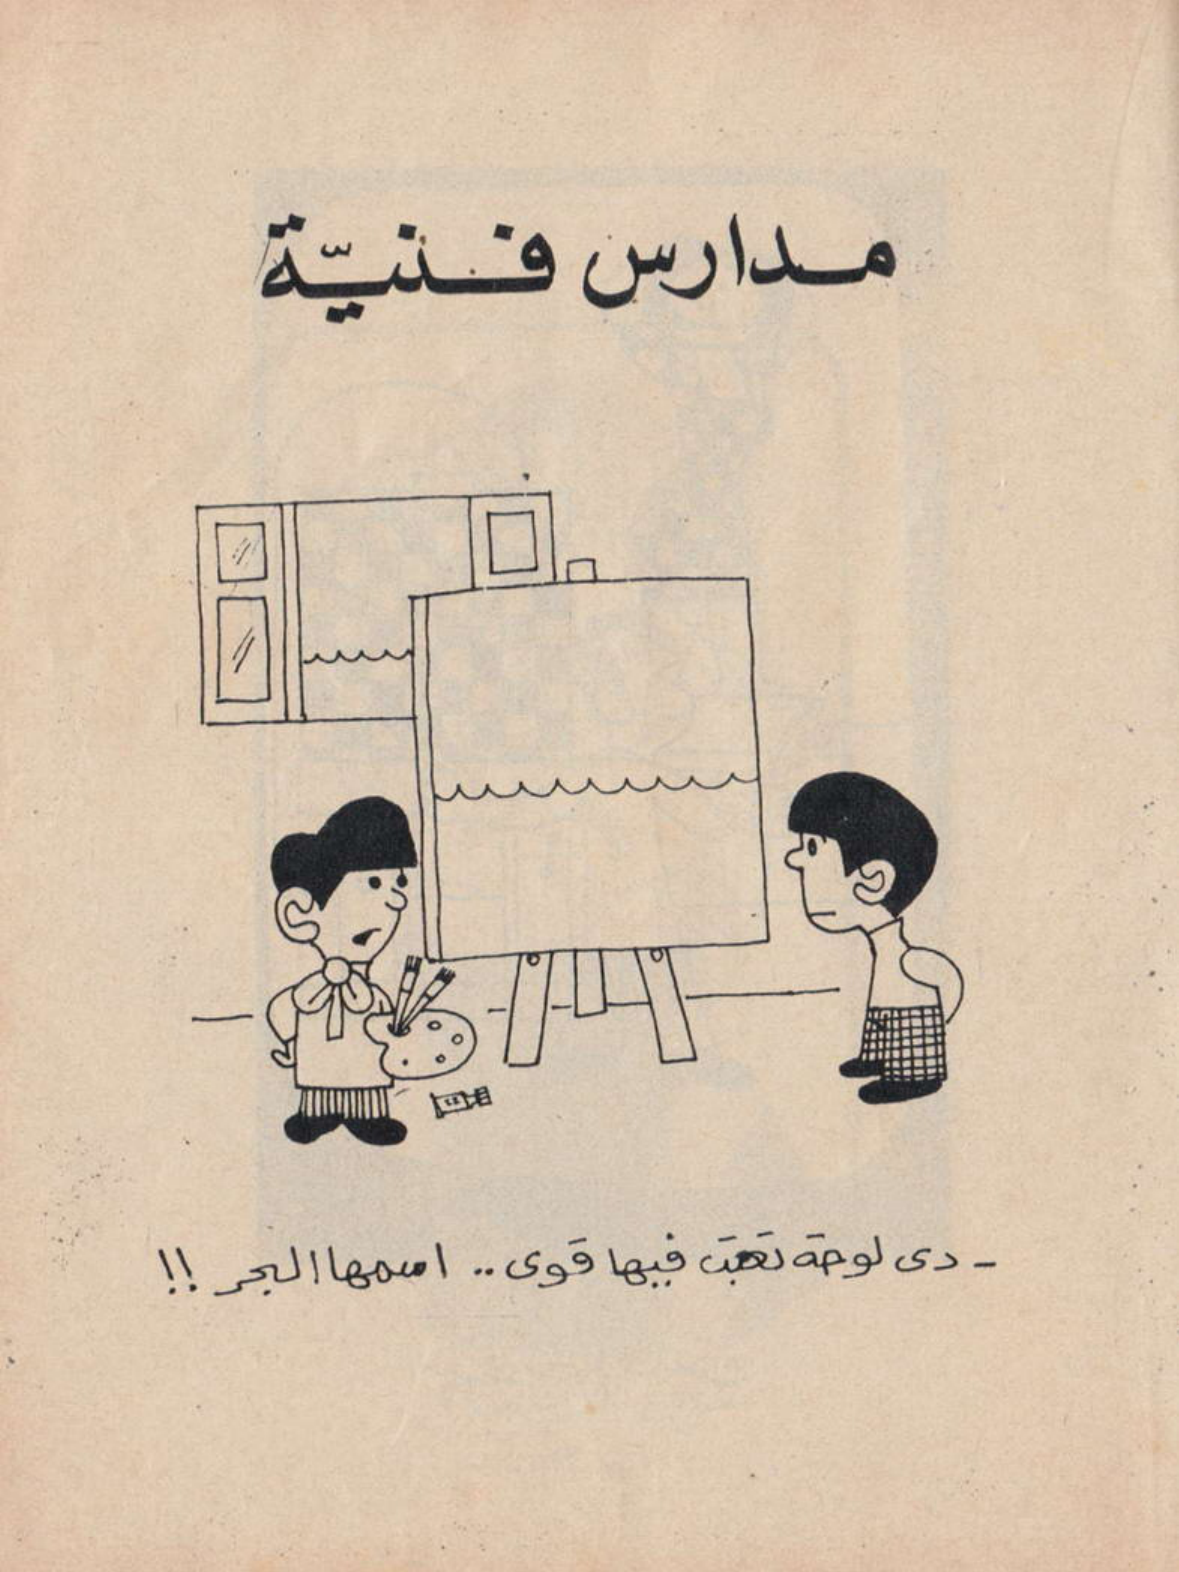 مدارس فنيّة
- دى لوحة تعبت فيها قوى .. اسمها البحر !!